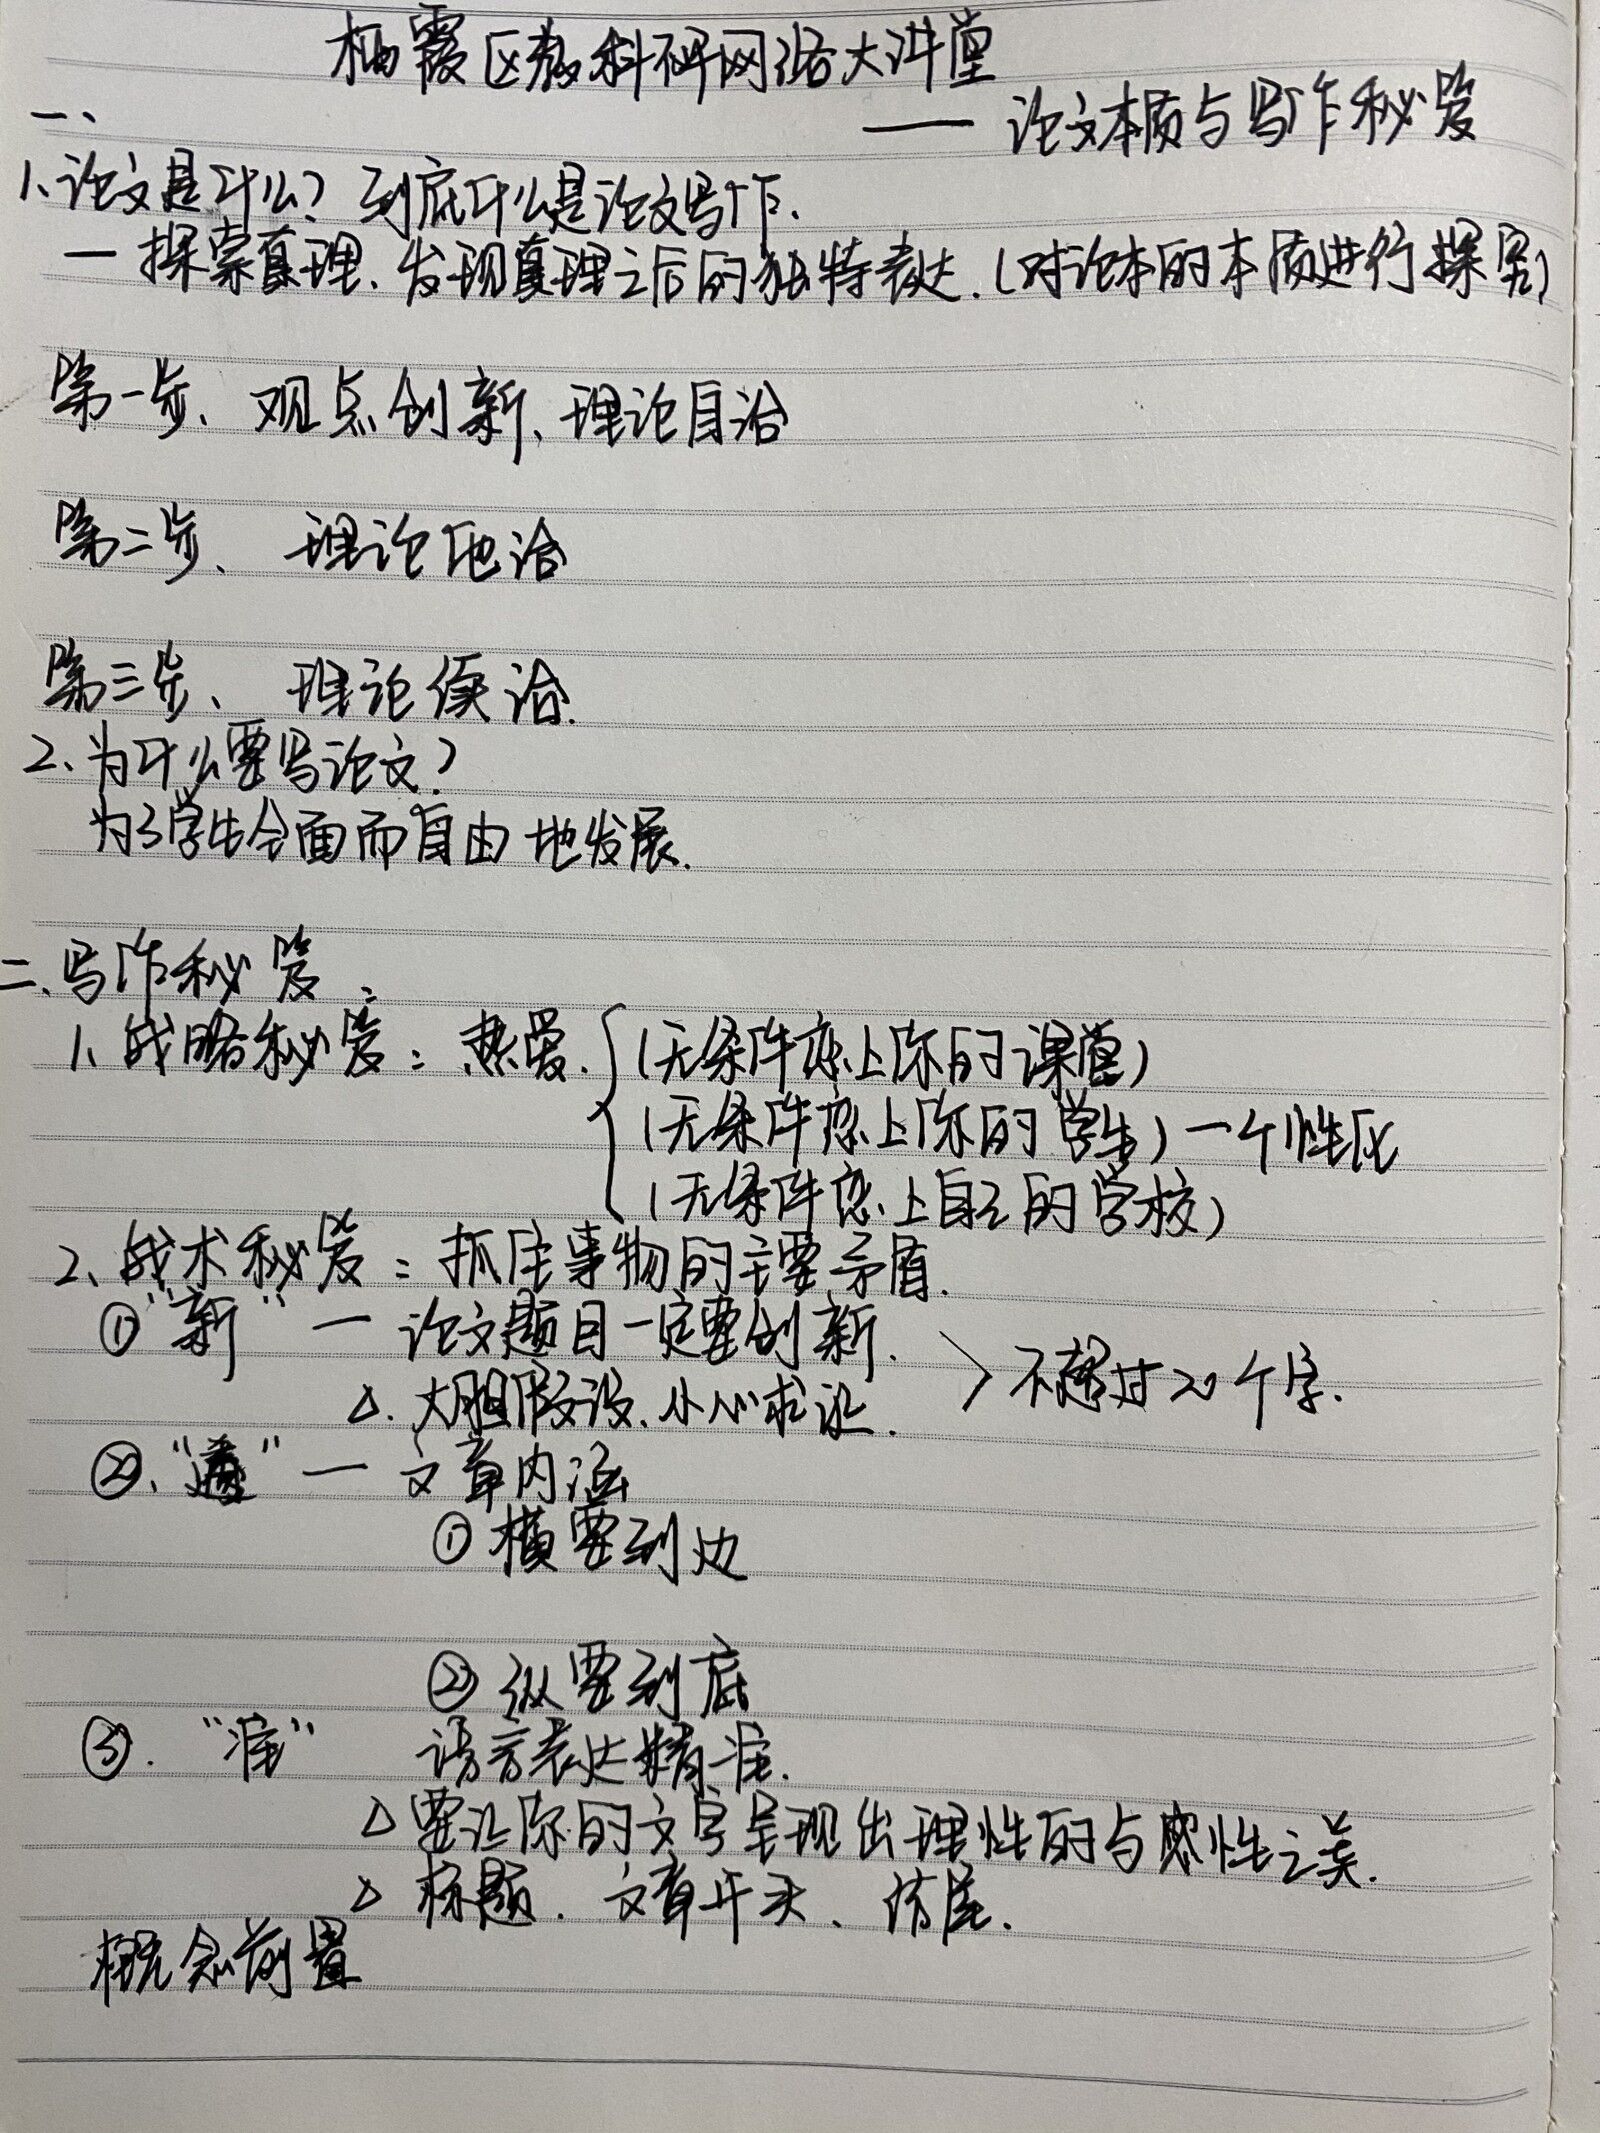 栖霞区教科研网络大讲堂
一、
——论文本质与写作秘笈
1、论文是什么？到底什么是论文写作.
一探索真理、发现真理之后的独特表达.(对论本的本质进行探究)
第一步、观点创新、理论自洽
第二步、理论他洽
第三步、理论续洽.
2、为什么要写论文？
为了学生全面而自由地发展.
二、写作秘笈、
1、战略秘笈：热爱.
(无条件恋上你的课堂)
(无条件恋上你的学生)一个性化
(无条件恋上自己的学校)
2、战术秘笈：抓住事物的主要矛盾.
①"新"一论文题目一定要创新.
△.大胆假设、小心求证.
>不超过20个字.
②、"透"一文章内涵
①横要到边
②纵要到底
③."准" 语言表达精准.
△要让你的文字呈现出理性的与感性之美.
△标题.文章开头、结尾.
概念前置